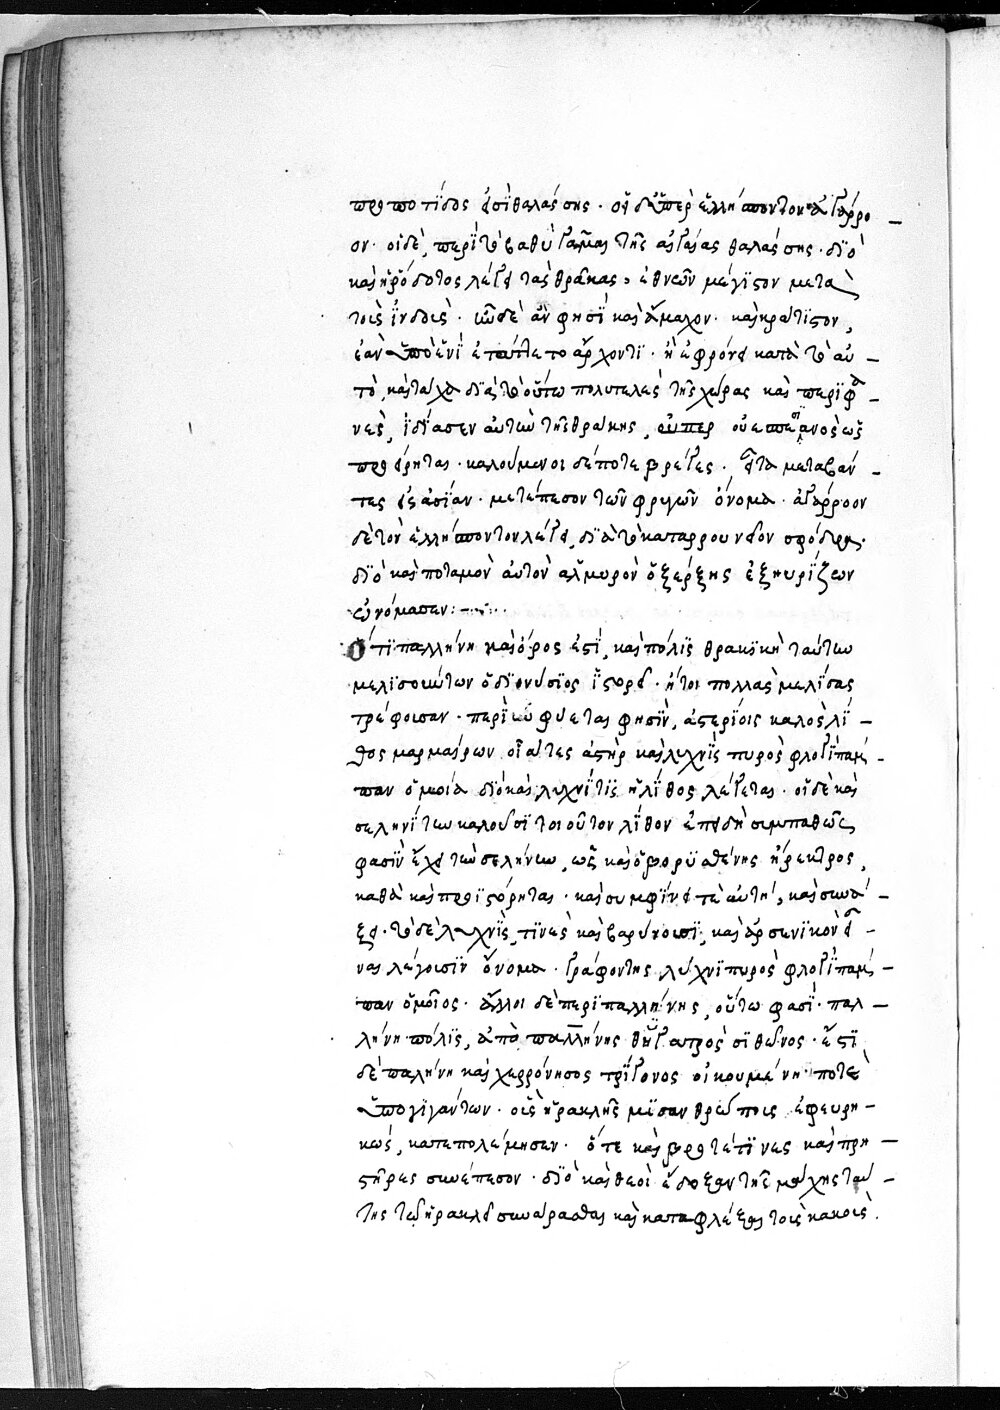 προποτίδος ἐστὶ θαλάσσης · οἱ δὲ ὑπὲρ ἑλλήσποντον ἀγάρρο –
ον · οἱ δὲ, περὶ τὸ βαθὺ τῆς αἰγαίας θαλάσσης · διὸ
καὶ ἡρόδοτος λέγει τὰς θράκας, ἐθνῶν μέγιστον μετὰ
τοὺς ἰνδοὺς · ἦν δὲ ἂν φησὶ καὶ ἄμαχον · καὶ κράτιστον,
ἐὰν ὑπὸ ἑνὶ ἐτάττετο ἄρχοντι · ἢ ἐφρόνει κατὰ τὸ αὐ –
τὸ, καὶ τάχα διὰ τὸ οὕτω πολυτελὲς τῆς χώρας καὶ περιφα –
νὲς, ἰδίασεν αὐτῶν τῆς θράκης, οὗπερ ὡς
προείρηται · καλούμενοι δέ ποτε βρίγες · εἶτα μεταβάν –
τες εἰς ἀσίαν · μετέπεσον τῶν φρυγῶν ὄνομα · ἀγάρροον
δὲ τὸν ἑλλήσποντον λέγει, διὰ τὸ καταρρου νέον σφόδρως ·
διὸ καὶ ποταμὸν αὐτὸν ἁλμυρὸν ὁ ξέρξης ἐξηυρίζων
ὠνόμασαν : –
Ὅτι παλλήνη καὶ ὄρος ἐστὶ, καὶ πόλις θρακικὴ ταύτην
μελισσοιώτων ὁ διονύσιος ἱστορεῖ · ἤτοι πολλὰς μελίσσας
τρέφουσαν · περὶ ἣν φύεται φησὶν, ἀστερίοις καλὸς λί –
θος μαρμαίρων οἷα τις ἀστὴρ καὶ λυχνὶς πυρὸς φλογὶ πάμ –
παν ὅμοια διὸ καὶ λυχνίτις ἡ λίθος λέγεται · οἱ δὲ καὶ
σεληνίτην καλοῦσι τοιοῦτον λίθον ἐπειδὴ συμπαθῶς
φασὶν ἔχει τὴν σελήνην, ὡς καὶ ὁ βορυσθένης ἤρεκτρος,
καθὰ καὶ προϊστόρηται · καὶ συμφθίνει τὲ αὐτῆ, καὶ συναύ –
ξει · τὸ δὲ λυχνὶς, τινὲς καὶ βαρύνουσι, καὶ ἀρσενικὸν εἶ –
ναι λέγουσιν ὄνομα · γράφοντες λύχνι πυρὸς φλογὶ πάμ –
παν ὅμοιος · ἄλλοι δὲ περὶ παλλήνης, οὕτω φασί · παλ –
λήνη πόλις, ἀπὸ παλλήνης θυγατρὸς σίθωνος · ἔστι
δὲ παλήνη καὶ χερρόνησος τρίγονος οἰκουμένη ποτὲ
ὑπὸ γιγάντων · οὓς ἡρακλῆς μισανθρώποις ἐφευρη –
κὼς, κατεπολέμησαν · ὅτε καὶ βρονταί τινες καὶ πρη –
στῆρες συνέπεσον · διὸ καὶ θεοὶ ἔδοξαν τῆς μάχης ταύ –
της τῷ ἡρακλεῖ συνάρασθαι καὶ καταφλέξαι τοὺς κακούς .